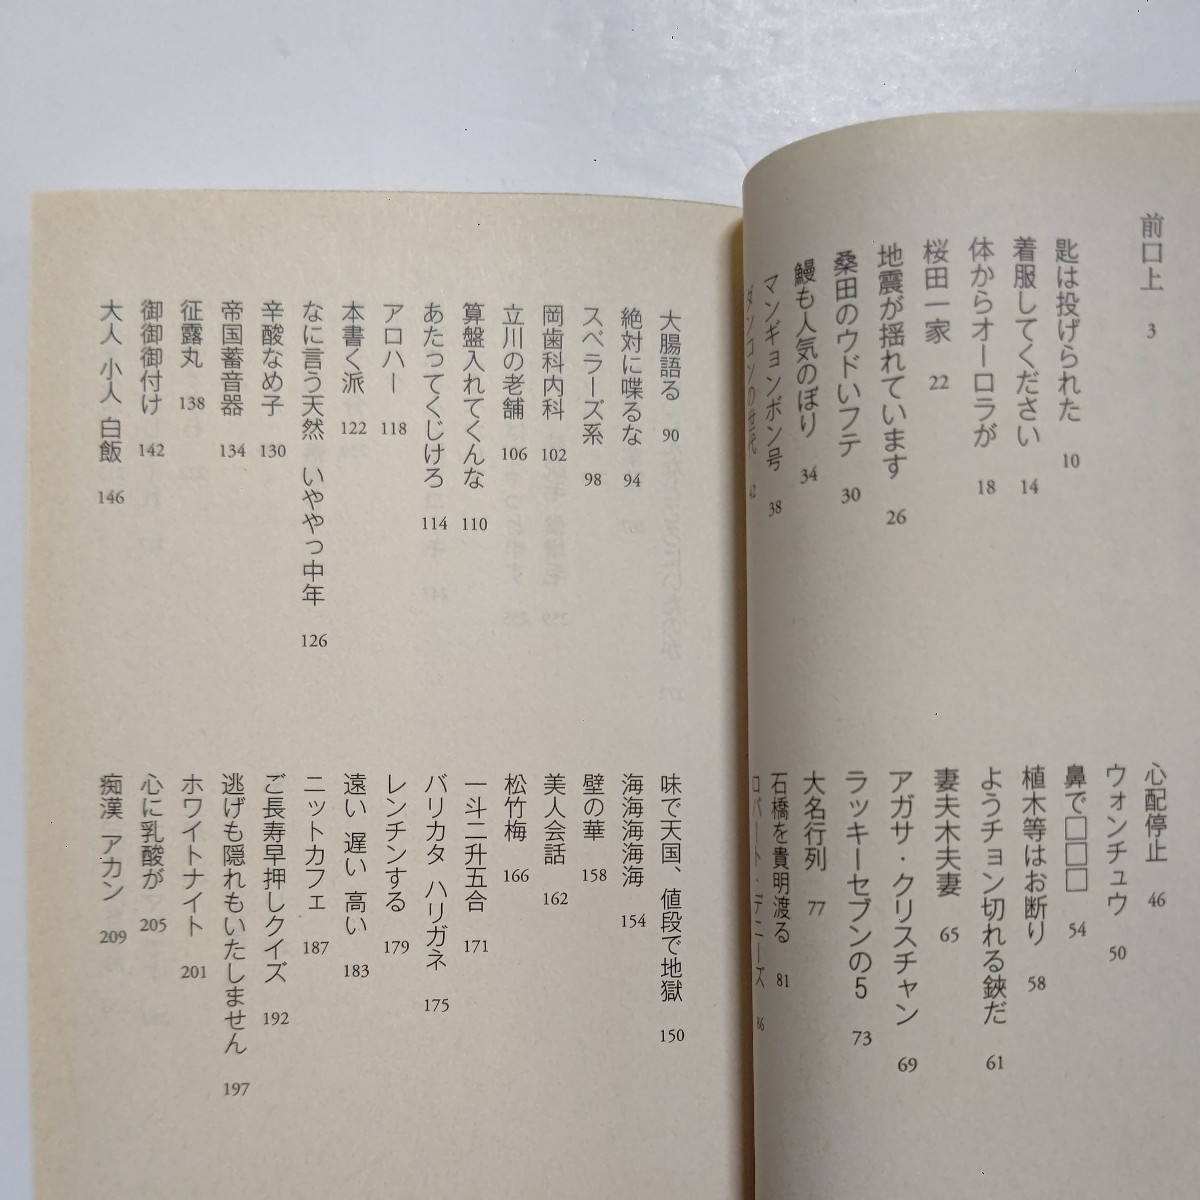 前口上 3
匙は投げられた 10
着服してください 14
体からオーロラが 18
桜田一家 22
地震が揺れています 26
桑田のウドいフテ 30
鰻も人気のぼり 34
マンギョンボン号 38
ダンコンの世代 42
心配停止 46
ウォンチュウ 50
鼻で□□□ 54
植木等はお断り 58
ようチョン切れる鋏だ 61
妻夫木夫妻 65
アガサ・クリスチャン 69
ラッキーセブンの5 73
大名行列 77
石橋を貴明渡る 81
ロバート・デニーズ 86
大腸語る 90
絶対に喋るな 94
スベラーズ系 98
岡歯科内科 102
立川の老舗 106
算盤入れてくんな 110
あたってくじけろ 114
アロハー 118
本書く派 122
なに言う天然 いややっ中年 126
辛酸なめ子 130
帝国蓄音器 134
征露丸 138
御御御付け 142
大人 小人 白飯 146
味で天国、値段で地獄 150
海海海海海 154
壁の華 158
美人会話 162
松竹梅 166
一斗二升五合 171
バリカタ ハリガネ 175
レンチンする 179
遠い 遅い 高い 183
ニットカフェ 187
ご長寿早押しクイズ 192
逃げも隠れもいたしません 197
ホワイトナイト 201
心に乳酸が 205
痴漢 アカン 209